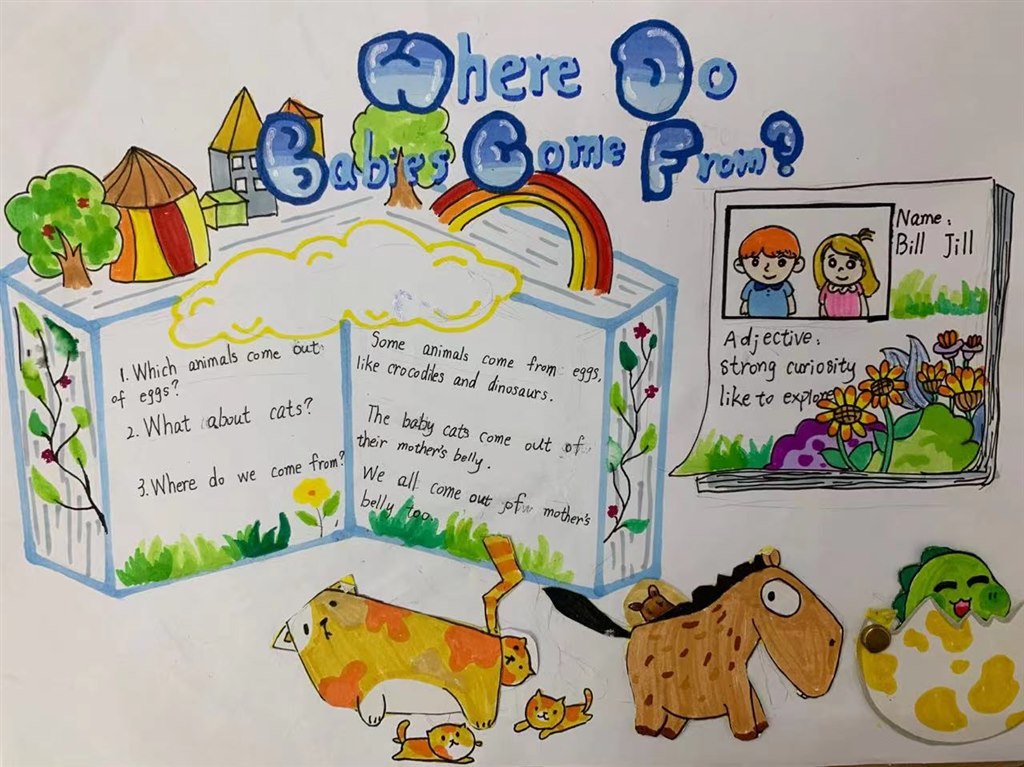 Where Do
Babies Come From?
1. Which animals come out
of eggs?
2. What about cats?
3. Where do we come from?
Some animals come from eggs,
like crocodiles and dinosaurs.
The baby cats come out of
their mother's belly.
We all come out of mother's
belly too.
Name:
Bill Jill
Adjective:
strong curiosity
like to explore